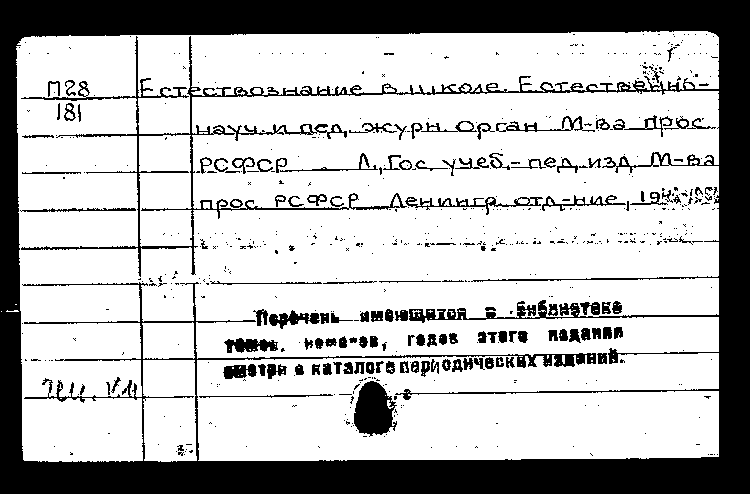 П28
181
Естествознание в школе. Естественно-
науч. и пед. журн. Орган М-ва прос.
РСФСР. Л., Гос. учеб.-пед. изд. М-ва
прос. РСФСР. Ленингр. отд-ние, 19
Перечень имеющихся в библиотеке
томов, номеров, годов этого издания
смотри в каталоге периодических изданий.